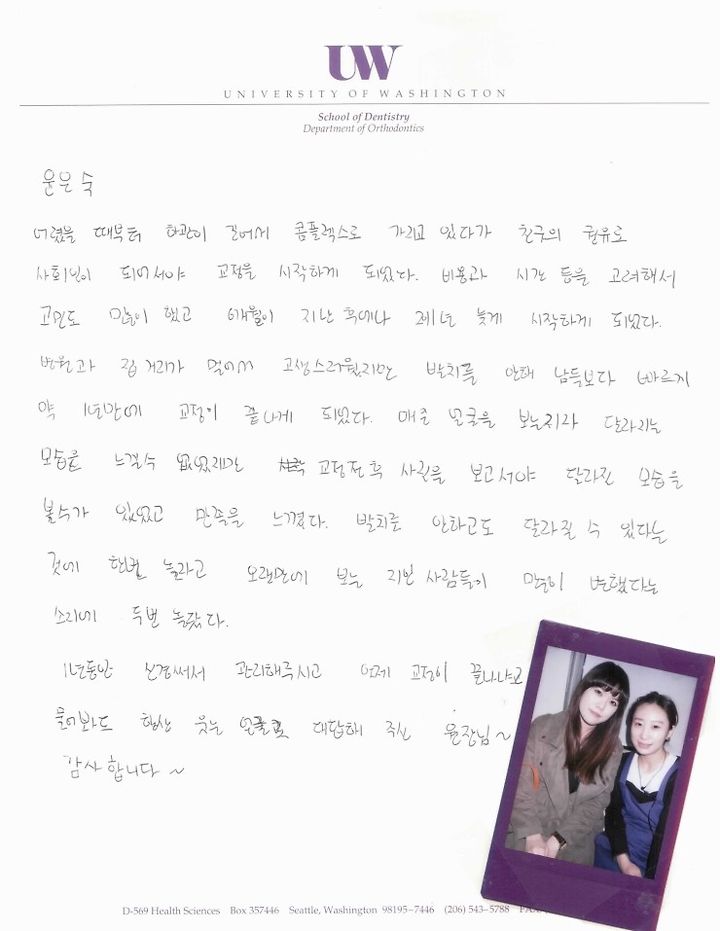 UW
UNIVERSITY OF WASHINGTON
School of Dentistry
Department of Orthodontics
윤은숙
어렸을 때부터 하관이 길어서 콤플렉스로 가리고 있다가 친구의 권유로
사회인이 되어서야 교정을 시작하게 되었다. 비용과 시간 등을 고려해서
고민도 많이 했고 6개월이 지난 후에나 제1년 늦게 시작하게 되었다.
병원과 집 거리가 멀어서 고생스러웠지만 발치를 안해 남들보다 빠르게
약 1년만에 교정이 끝나게 되었다. 매일 얼굴을 보는지라 달라지는
모습을 느낄수 없었지만 교정전후 사진을 보고서야 달라진 모습을
볼수가 있었고 만족을 느꼈다. 발치를 안하고도 달라질 수 있다는
것에 한번 놀라고 오랜만에 보는 지인 사람들이 많이 변했다는
소리에 두번 놀랐다.
1년동안 신경써서 관리해주시고 언제 교정이 끝나냐고
물어봐도 항상 웃는 얼굴로 대답해 주신 원장님~
감사합니다~
D-569 Health Sciences Box 357446 Seattle, Washington 98195-7446 (206) 543-5788